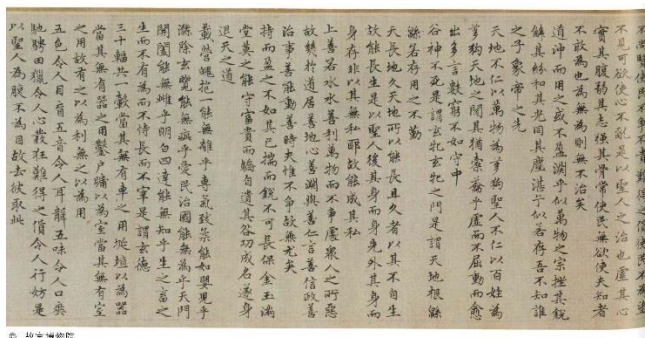 不尚賢使民不爭不貴難得之貨使民不為盜
不見可欲使心不亂是以聖人之治也虛其心
實其腹弱其志強其骨常使民無欲使夫知者
不敢為也為無為則無不治矣
道沖而用之或不盈淵乎似萬物之宗挫其銳
解其紛和其光同其塵湛乎似若存吾不知誰
之子象帝之先
天地不仁以萬物為芻狗聖人不仁以百姓為
芻狗天地之間其猶橐籥乎虛而不屈動而愈
出多言數窮不如守中
谷神不死是謂玄牝玄牝之門是謂天地根綿
綿若存用之不勤
天長地久天地所以能長且久者以其不自生
故能長生是以聖人後其身而身先外其身而
身存非以其無私耶故能成其私
上善若水水善利萬物而不爭處衆人之所惡
故幾於道居善地心善淵與善仁言善信政善
治事善能動善時夫惟不爭故無尤矣
持而盈之不如其已揣而銳不可長保金玉滿
堂莫之能守富貴而驕自遺其咎功成名遂身
退天之道
載營魄抱一能無離乎專氣致柔能如嬰兒乎
滌除玄覽能無疵乎愛民治國能無為乎天門
開闔能無雌乎明白四達能無知乎生之畜之
生而不有為而不恃長而不宰是謂玄德
三十輻共一轂當其無有車之用埏埴以為器
當其無有器之用鑿戶牖以為室當其無有室
之用故有之以為利無之以為用
五色令人目盲五音令人耳聾五味令人口爽
馳騁田獵令人心發狂難得之貨令人行妨是
以聖人為腹不為目故去彼取此
© 故宮博物院